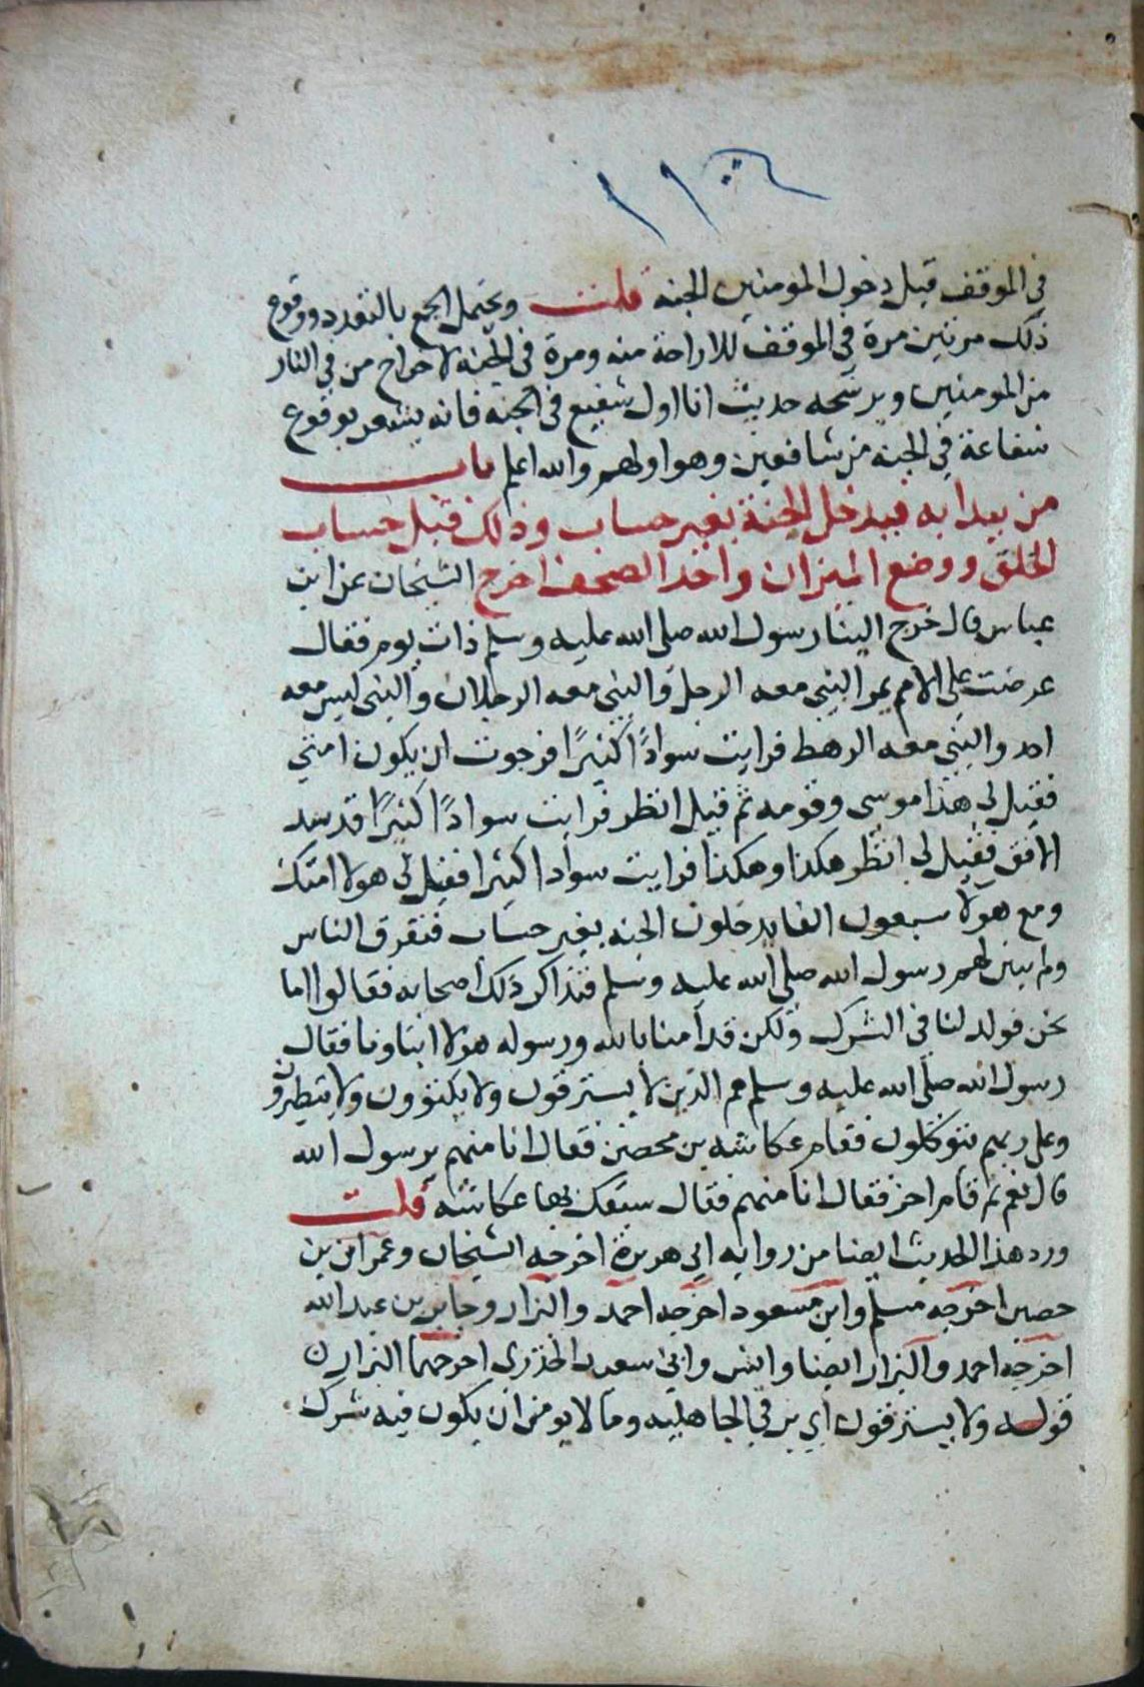 في الموقف قبل دخول المومنين الجنه قلت ويحتمل الجمع بالتعدد ووقوع
ذلك مرتين مرة في الموقف للاراحة منه ومرة في الجنه لاخراج من في النار
من المومنين ويرشحه حديث انا اول شفيع في الجنه فانه يشعر بوقوع
شفاعة في الجنة من شافعين وهو اولهم والله اعلم باب
من يبدا به فيدخل الجنة بغير حساب وذلك قبل حساب
الخلق ووضع الميزان واخذ الصحف اخرج الشيخان عن ابن
عباس قال خرج الينا رسول الله صلى الله عليه وسلم ذات يوم فقال
عرضت علي الامم يمر النبي معه الرجل والنبي معه الرجلان والنبي ليس معه
احد والنبي معه الرهط فرايت سوادًا كثيرًا فرجوت ان يكون امتي
فقيل لي هذا موسى وقومه ثم قيل انظر فرايت سوادًا كثيرًا قد سد
الافق فقيل لي انظر هكذا وهكذا فرايت سوادا كثيرا فقيل لي هولا امتك
ومع هولا سبعون الفا يدخلون الجنه بغير حساب فتفرق الناس
ولم يبين لهم رسول الله صلى الله عليه وسلم فتذاكر ذلك اصحابه فقالوا اما
نحن فولدنا في الشرك ولكن قد امنا بالله ورسوله هولا ابناونا فقال
رسول الله صلى الله عليه وسلم هم الذين لا يسترقون ولا يكتوون ولا يتطيرون
وعلى ربهم يتوكلون فقام عكاشه بن محصن فقال انا منهم يرسول الله
قال نعم ثم قام اخر فقال انا منهم فقال سبقك بها عكاشه قلت
ورد هذا الحديث ايضا من روايه ابي هريرة اخرجه الشيخان وعمران بن
حصين اخرجه مسلم وابن مسعود اخرجه احمد والبزار وجابر بن عبد الله
اخرجه احمد والبزار ايضا وانس وابي سعيد الخدري اخرجهما البزار
قوله ولا يسترقون اي برقي الجاهليه وما لا يومن ان يكون فيه شرك